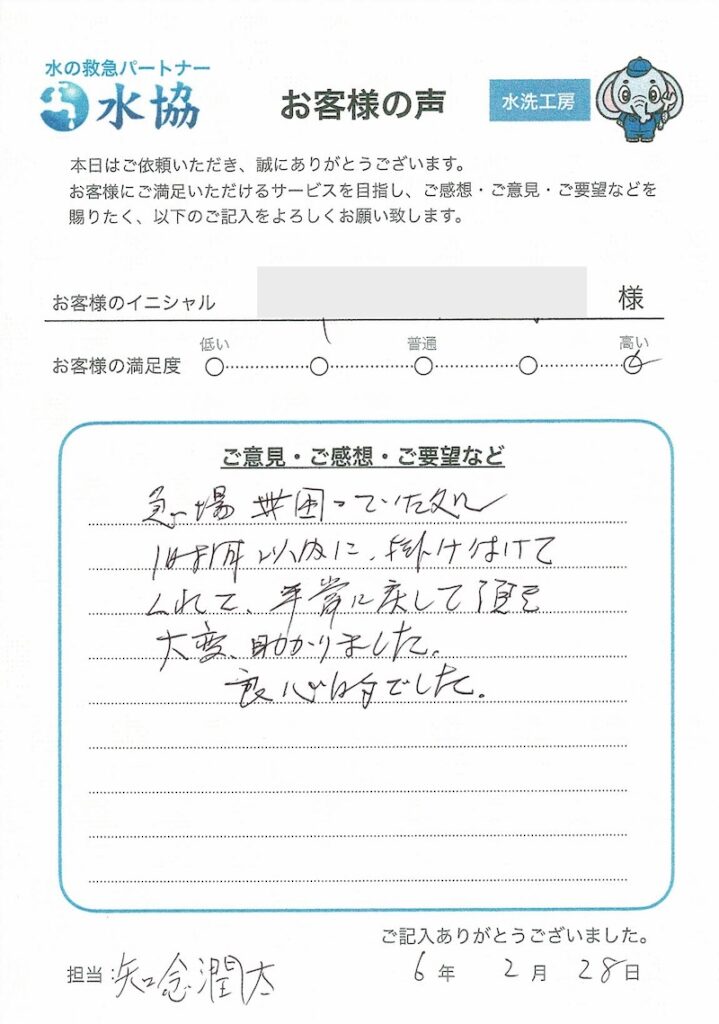 水の救急パートナー
水協
お客様の声
水洗工房
本日はご依頼いただき、誠にありがとうございます。
お客様にご満足いただけるサービスを目指し、ご感想・ご意見・ご要望などを
賜りたく、以下のご記入をよろしくお願い致します。
お客様のイニシャル 様
お客様の満足度 低い 普通 高い
ご意見・ご感想・ご要望など
急場 困っていた処
1時間以内に、掛け付けて
くれて、平常に戻して頂き
大変、助かりました。
良心的でした。
ご記入ありがとうございました。
担当:知念潤太 6年 2月 28日